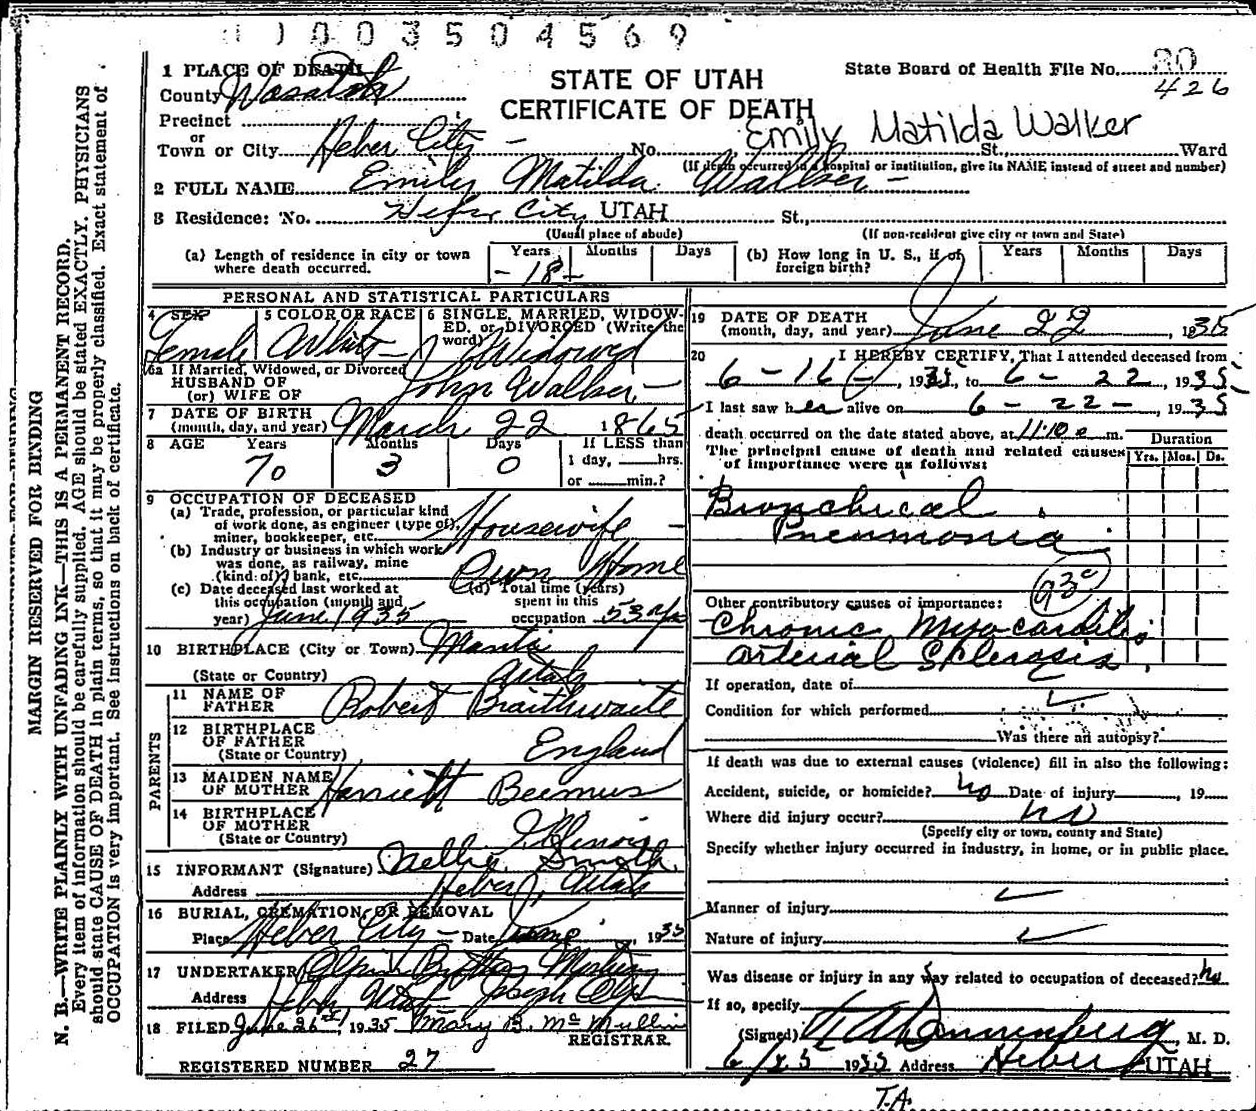 0003504569
1 PLACE OF DEATH
STATE OF UTAH
State Board of Health File No. 80
County Wasatch
CERTIFICATE OF DEATH
426
Precinct
Emily Matilda Walker
or
Town or City Heber City No. St., Ward
(If death occurred in a hospital or institution, give its NAME instead of street and number)
2 FULL NAME Emily Matilda Walker
3 Residence: No. Heber City, UTAH St.,
(Usual place of abode) (If non-resident give city or town and State)
(a) Length of residence in city or town where death occurred. Years Months Days
- 18 -
(b) How long in U. S., if of foreign birth? Years Months Days
PERSONAL AND STATISTICAL PARTICULARS
4 SEX 5 COLOR OR RACE 6 SINGLE, MARRIED, WIDOWED, or DIVORCED (Write the word)
Female White Widowed
6a If Married, Widowed, or Divorced
HUSBAND OF
(or) WIFE OF John Walker
7 DATE OF BIRTH
(month, day, and year) March 22 1865
8 AGE Years Months Days If LESS than
70 3 0 1 day, hrs.
or min.?
9 OCCUPATION OF DECEASED
(a) Trade, profession, or particular kind
of work done, as engineer (type of), Housewife
miner, bookkeeper, etc.
(b) Industry or business in which work
was done, as railway, mine
(kind of) bank, etc. Own Home
(c) Date deceased last worked at
this occupation (month and
year) June 1935
(d) Total time (years)
spent in this
occupation 53 yrs
10 BIRTHPLACE (City or Town) Manti
(State or Country) Utah
PARENTS
11 NAME OF
FATHER Robert Braithwaite
12 BIRTHPLACE
OF FATHER England
(State or Country)
13 MAIDEN NAME
OF MOTHER Harriett Beemus
14 BIRTHPLACE
OF MOTHER Illinois
(State or Country)
15 INFORMANT (Signature) Nellie Smith
Address Heber, Utah
16 BURIAL, CREMATION, OR REMOVAL
Place Heber City Date June, 1935
17 UNDERTAKER Olpin Brothers Mortuary
Address Heber Utah Joseph Olpin
18 FILED June 26th 1935 Mary B. McMullin
REGISTRAR.
REGISTERED NUMBER 27
19 DATE OF DEATH
(month, day, and year) June 22, 1935
20 I HEREBY CERTIFY, That I attended deceased from
6 - 16 -, 1935, to 6 - 22, 1935
I last saw her alive on 6 - 22 -, 1935
death occurred on the date stated above, at 11:10 m.
The principal cause of death and related causes
of importance were as follows:
Duration
Yrs. Mos. Ds.
Bronchical
Pneumonia
93c
Other contributory causes of importance:
Chronic Myocarditis
Arterial Sclerosis
If operation, date of
Condition for which performed
Was there an autopsy?
If death was due to external causes (violence) fill in also the following:
Accident, suicide, or homicide? no Date of injury, 19
Where did injury occur? no
(Specify city or town, county and State)
Specify whether injury occurred in industry, in home, or in public place.
Manner of injury
Nature of injury
Was disease or injury in any way related to occupation of deceased? no
If so, specify
(Signed) Dannenberg, M. D.
6/25 1935 Address Heber UTAH
T.A.
MARGIN RESERVED FOR BINDING
N. B.—WRITE PLAINLY WITH UNFADING INK—THIS IS A PERMANENT RECORD.
Every item of information should be carefully supplied. AGE should be stated EXACTLY. PHYSICIANS
should state CAUSE OF DEATH in plain terms, so that it may be properly classified. Exact statement of
OCCUPATION is very important. See instructions on back of certificate.